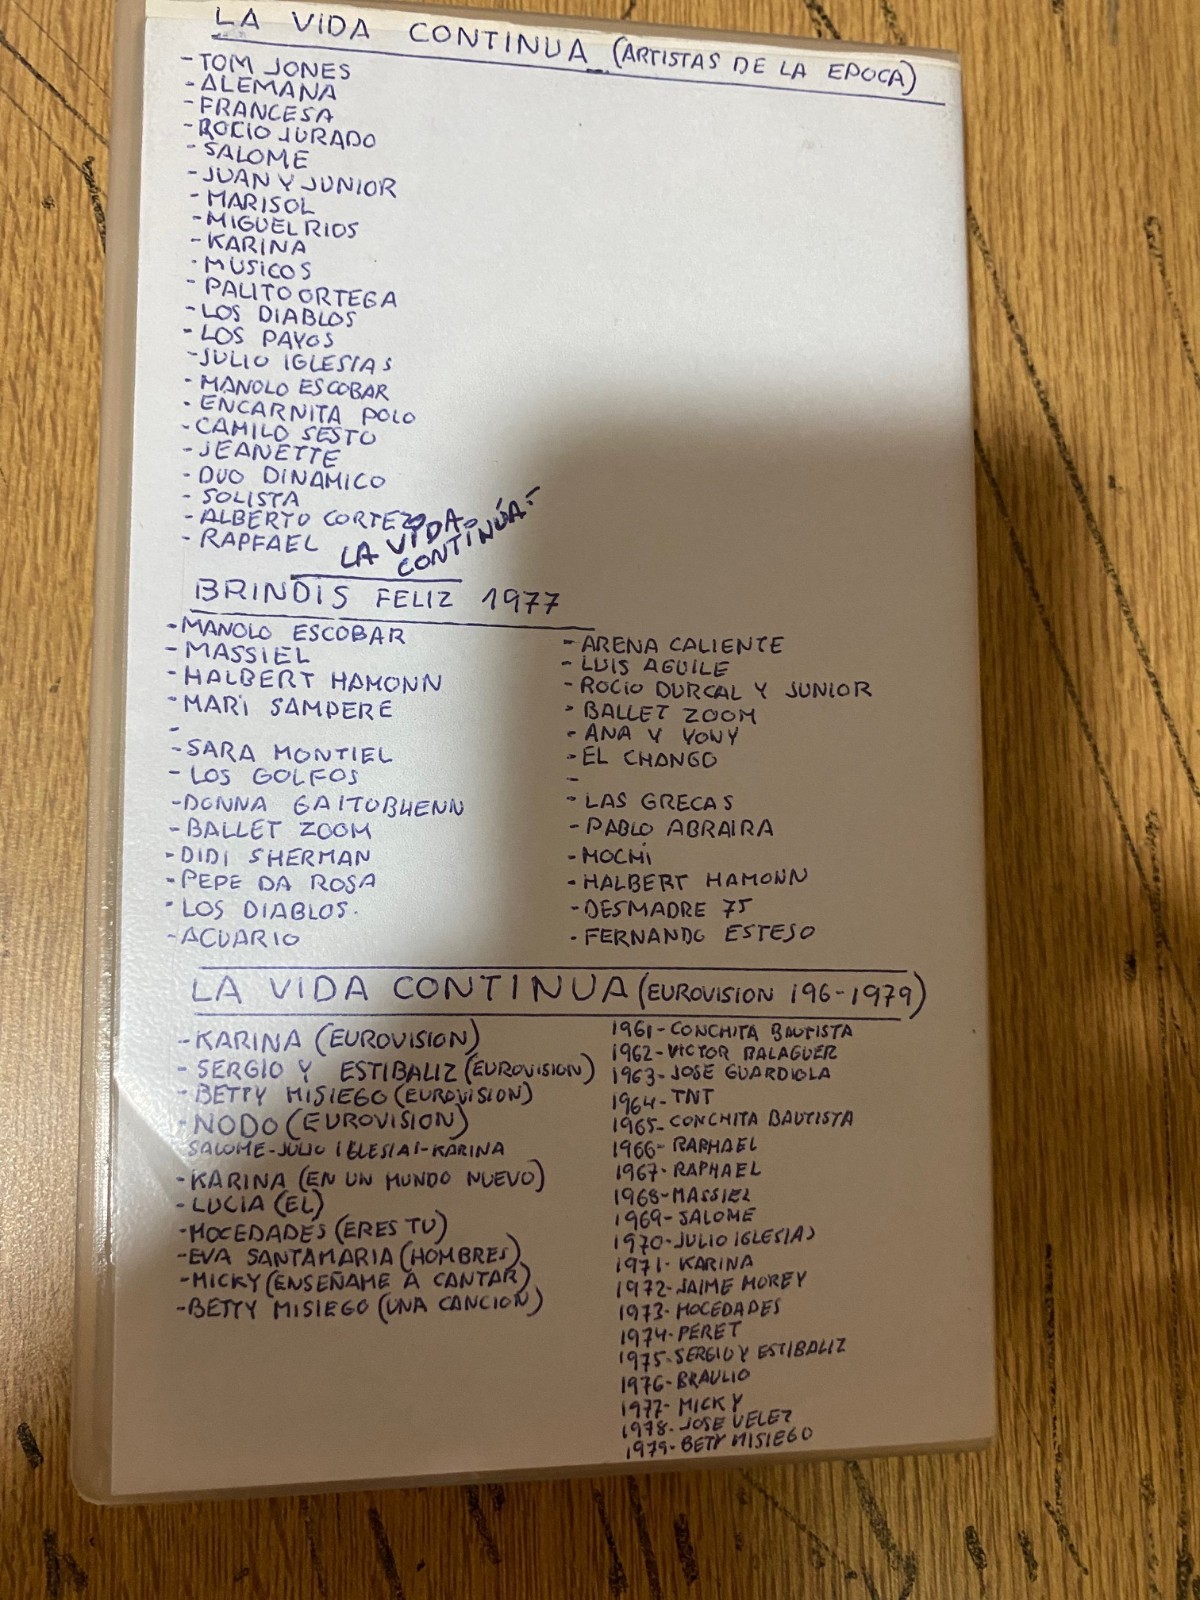 LA VIDA CONTINUA (ARTISTAS DE LA EPOCA)
- TOM JONES
- ALEMANA
- FRANCESA
- ROCIO JURADO
- SALOME
- JUAN Y JUNIOR
- MARISOL
- MIGUEL RIOS
- KARINA
- MUSICOS
- PALITO ORTEGA
- LOS DIABLOS
- LOS PAYOS
- JULIO IGLESIAS
- MANOLO ESCOBAR
- ENCARNITA POLO
- CAMILO SESTO
- JEANETTE
- DUO DINAMICO
- SOLISTA
- ALBERTO CORTEZ
- RAPFAEL
LA VIDA
CONTINÚA-
BRINDIS FELIZ 1977
- MANOLO ESCOBAR
- MASSIEL
- HALBERT HAMONN
- MARI SAMPERE
-
- SARA MONTIEL
- LOS GOLFOS
- DONNA GAITOBHENN
- BALLET ZOOM
- DIDI SHERMAN
- PEPE DA ROSA
- LOS DIABLOS.
- ACUARIO
- ARENA CALIENTE
- LUIS AGUILE
- ROCIO DURCAL Y JUNIOR
- BALLET ZOOM
- ANA Y YONY
- EL CHANGO
-
- LAS GRECAS
- PABLO ABRAIRA
- MOCHI
- HALBERT HAMONN
- DESMADRE 75
- FERNANDO ESTESO
LA VIDA CONTINUA (EUROVISION 196-1979)
- KARINA (EUROVISION)
- SERGIO Y ESTIBALIZ (EUROVISION)
- BETTY MISIEGO (EUROVISION)
- NODO (EUROVISION)
SALOME-JULIO IGLESIAS-KARINA
- KARINA (EN UN MUNDO NUEVO)
- LUCIA (EL)
- MOCEDADES (ERES TU)
- EVA SANTAMARIA (HOMBRES)
- MICKY (ENSEÑAME A CANTAR)
- BETTY MISIEGO (UNA CANCION)
1961- CONCHITA BAUTISTA
1962- VICTOR BALAGUER
1963- JOSE GUARDIOLA
1964- TNT
1965- CONCHITA BAUTISTA
1966- RAPHAEL
1967- RAPHAEL
1968- MASSIEL
1969- SALOME
1970- JULIO IGLESIAS
1971- KARINA
1972- JAIME MOREY
1973- MOCEDADES
1974- PERET
1975- SERGIO Y ESTIBALIZ
1976- BRAULIO
1977- MICKY
1978- JOSE VELEZ
1979- BETY MISIEGO